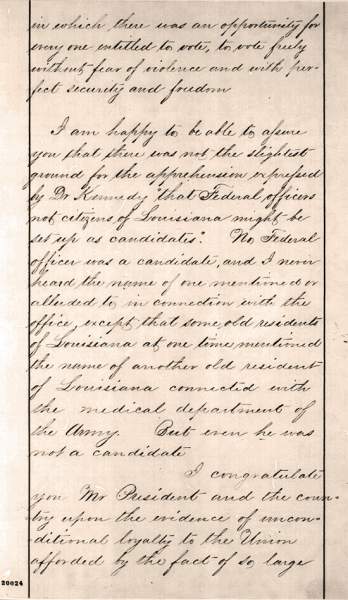 in which there was an opportunity for
every one entitled to vote, to vote freely
without fear of violence and with per-
fect security and freedom
I am happy to be able to assure
you that there was not the slightest
ground for the apprehension expressed
by Dr Kennedy "that Federal officers
not citizens of Louisiana might be
set up as candidates". No Federal
officer was a candidate, and I never
heard the name of one mentioned or
alluded to in connection with the
office, except that some old residents
of Louisiana at one time mentioned
the name of another old resident
of Louisiana connected with
the medical department of
the Army. But even he was
not a candidate
I congratulate
you Mr President and the coun-
try upon the evidence of uncon-
ditional loyalty to the Union
afforded by the fact of so large
20024